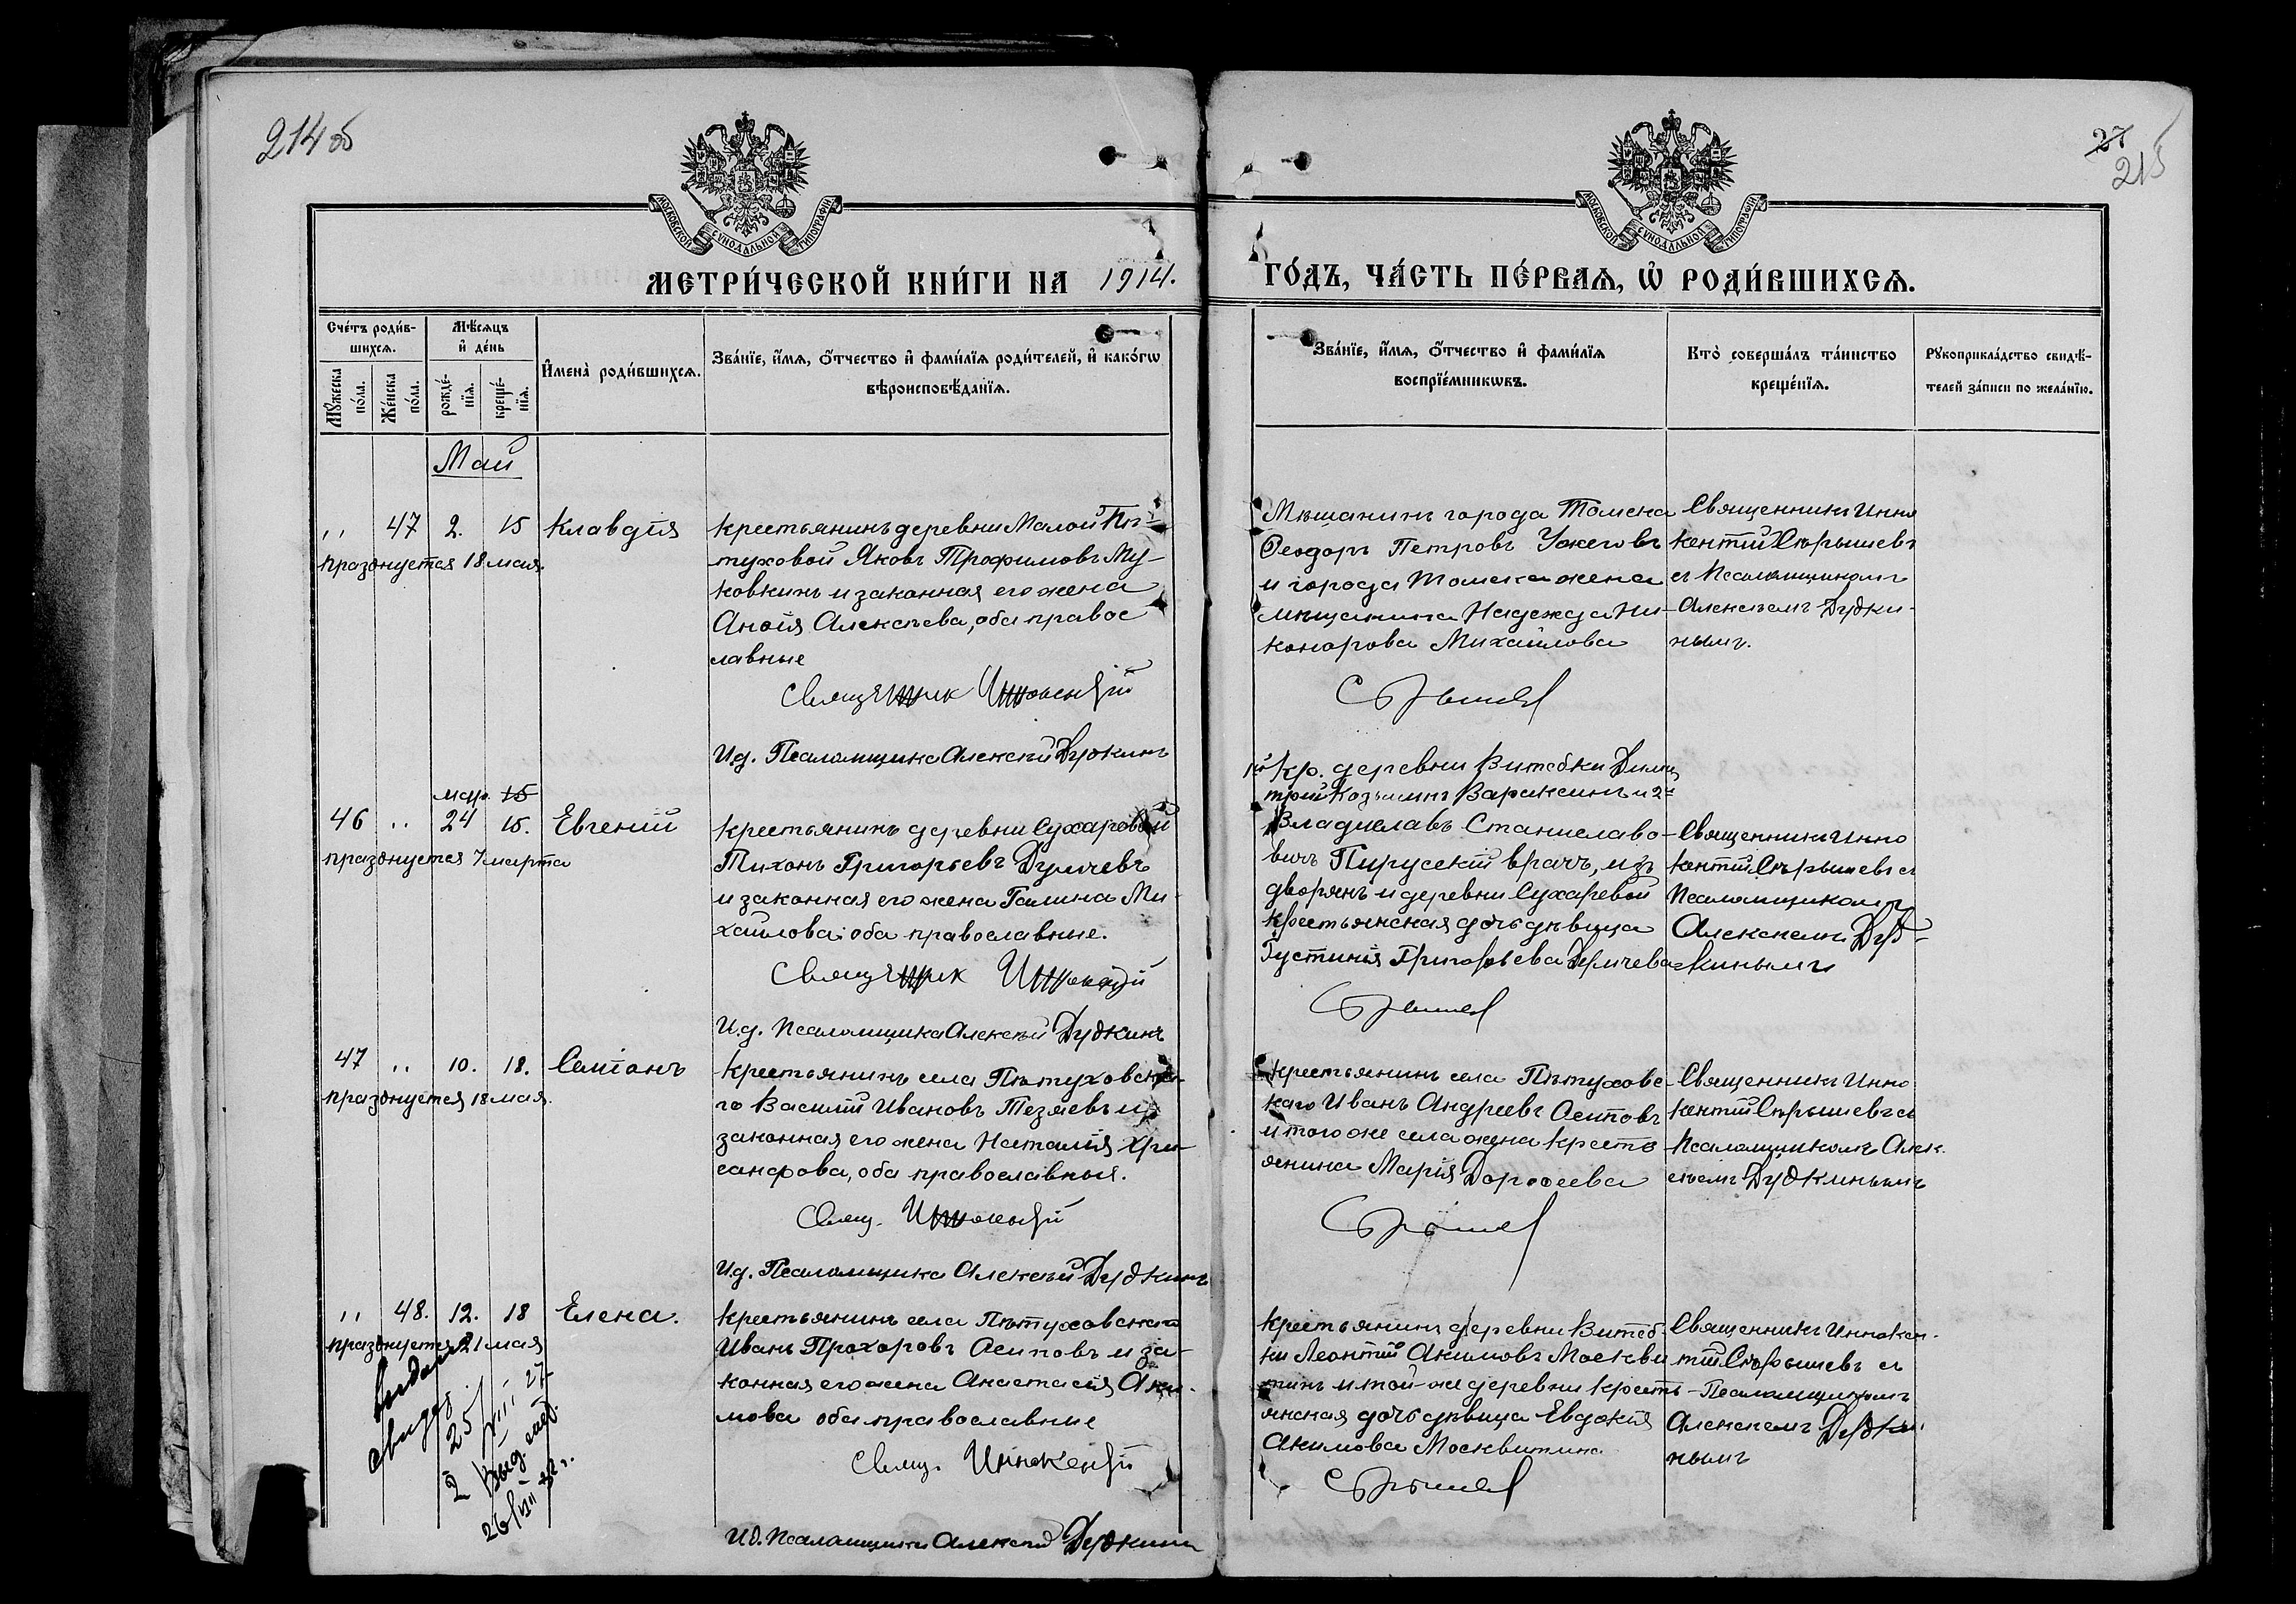 214 об
27
215
МОСКОВСКОЙ СѴНОДАЛЬНОЙ ТИПОГРАФІИ
МОСКОВСКОЙ СѴНОДАЛЬНОЙ ТИПОГРАФІИ
МЕТРИ́ЧЕСКОЙ КНИ́ГИ НА 1914.
ГО́ДЪ, ЧА́СТЬ ПЕ́РВАѦ, Ѡ҆ РОДИ́ВШИХСѦ.
Сче́тъ роди́в-
шихсѧ.
Мꙋ́жеска по́ла.
Же́нска по́ла.
Мѣ́сѧцъ
и҆ де́нь
рожде́-
нїѧ.
креще́-
нїѧ.
И҆мена̀ роди́вшихсѧ.
Зва́нїе, и҆́мѧ, ѻ҆́тчество и҆ фами́лїѧ роди́телей, и҆ како́гѡ
вѣроисповѣ́данїѧ.
Зва́нїе, и҆́мѧ, ѻ҆́тчество и҆ фами́лїѧ
воспрїе́мникѡвъ.
Кто̀ соверша́лъ та́инство
креще́нїѧ.
Рꙋкоприкла́дство свидѣ́-
телей за́писи по жела́нїю.
Май
,, 47 2. 15 Клавдія
празднуется 18 мая.
крестьянинъ деревни Малой Пѣ-
туховой Яковъ Трофимовъ Му-
ковкинъ и законная его жена
Анѳія Алексѣева, оба право с
лавные
Священник Иннокентій
И.д. Псаломщика Алексѣй Дудкинъ
Мѣщанинъ города Томска
Ѳеодоръ Петровъ Ужеговъ
и города Томска жена
мѣщанина Надежда Ни-
конорова Михайлова
Сѣрышев
Священникъ Инно
кентій Сѣрышевъ
съ Псаломщикомъ
Алексѣемъ Дудки-
нымъ.
мар. 15
46 ,, 24 15. Евгеній
празднуется 7 марта
крестьянинъ деревни Сухаревой
Тихонъ Григорьевъ Думчевъ
и законная его жена Галина Ми-
хайлова оба православные.
Священник Иннокентій
И.д. Псаломщика Алексѣй Дудкинъ
1й Кр. деревни Витебки Димит
трій Козьминъ Вараксинъ и 2й
Владиславъ Станиславо-
вичъ Пирусскій врачъ, изъ
дворянъ и деревни Сухаревой
крестьянская дочь дѣвица
Густинія Григорьева Думчева
Сѣрышев
Священникъ Инно
кентій Сѣрышевъ съ
Псаломщикомъ
Алексѣемъ Дуд-
кинымъ
47 ,, 10. 18. Симеонъ
празднуется 18 мая.
Крестьянинъ села Пѣтуховска-
го Василій Ивановъ Тезяевъ и
законная его жена Наталія Хри-
санфова, оба православныя.
Свящ. Иннокентій
И.д. Псаломщика Алексѣй Дудкинъ
Крестьянинъ села Пѣтуховс-
каго Иванъ Андреевъ Осиповъ
и того же села жена кресть
янина Марія Дороѳеева
Сѣрышев
Священникъ Инно
кентій Сѣрышевъ съ
Псаломщикомъ Алек-
сѣемъ Дудкинымъ
,, 48. 12. 18 Елена.
празднуется 21 мая
Крестьянинъ села Пѣтуховскаго
Иванъ Прохоровъ Осиповъ и за-
конная его жена Анастасія Аки-
мова оба православные
Свящ. Иннокентій
И.д. Псаломщика Алексѣй Дудкинъ
Крестьянинъ деревни Витеб-
ки Леонтій Акимовъ Москви
тинъ и той-же деревни кресть-
янская дочь дѣвица Евдокія
Акимова Москвитина
Сѣрышев
Священникъ Иннокен-
тій Сѣрышевъ съ
Псаломщикомъ
Алексѣемъ Дудки
нымъ
Выдано
свидет.
25/VIII 27
2 Выд.
26/VII 32 г.